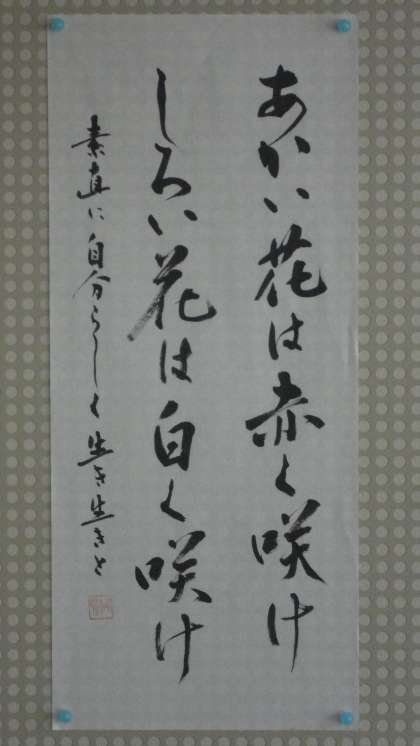 あかい花は赤く咲け
しろい花は白く咲け
素直に自分らしく生き生きと